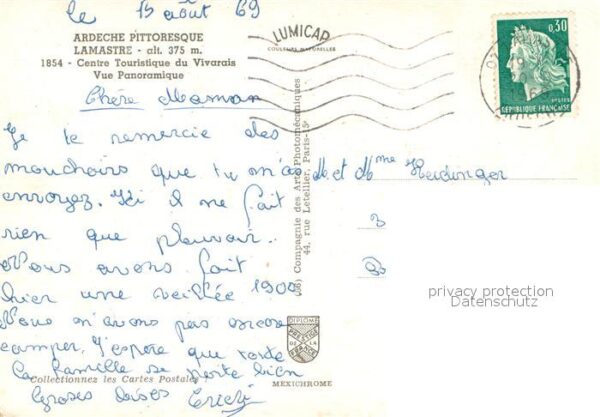 le 13 août 69
ARDECHE PITTORESQUE
LAMASTRE - alt. 375 m.
1854 - Centre Touristique du Vivarais
Vue Panoramique
Chère Maman
Je te remercie des
mouchoirs que tu m'as
envoyez. Ici il ne fait
rien que pleuvoir..
Nous avons fait
hier une veillée 1900
Nous n'avons pas encore
camper. J'espère que toute
la famille se porte bien
Grosses bises
Collectionnez les Cartes Postales
LUMICAP
COULEURS NATURELLES
(96) Compagnie des Arts Photomécaniques
44, rue Letellier, Paris-15e
DIPLOME
PRESTIGE
DE LA
FRANCE
MEXICHROME
0,30
POSTES
REPUBLIQUE FRANÇAISE
M et Mme
3
privacy protection
Datenschutz